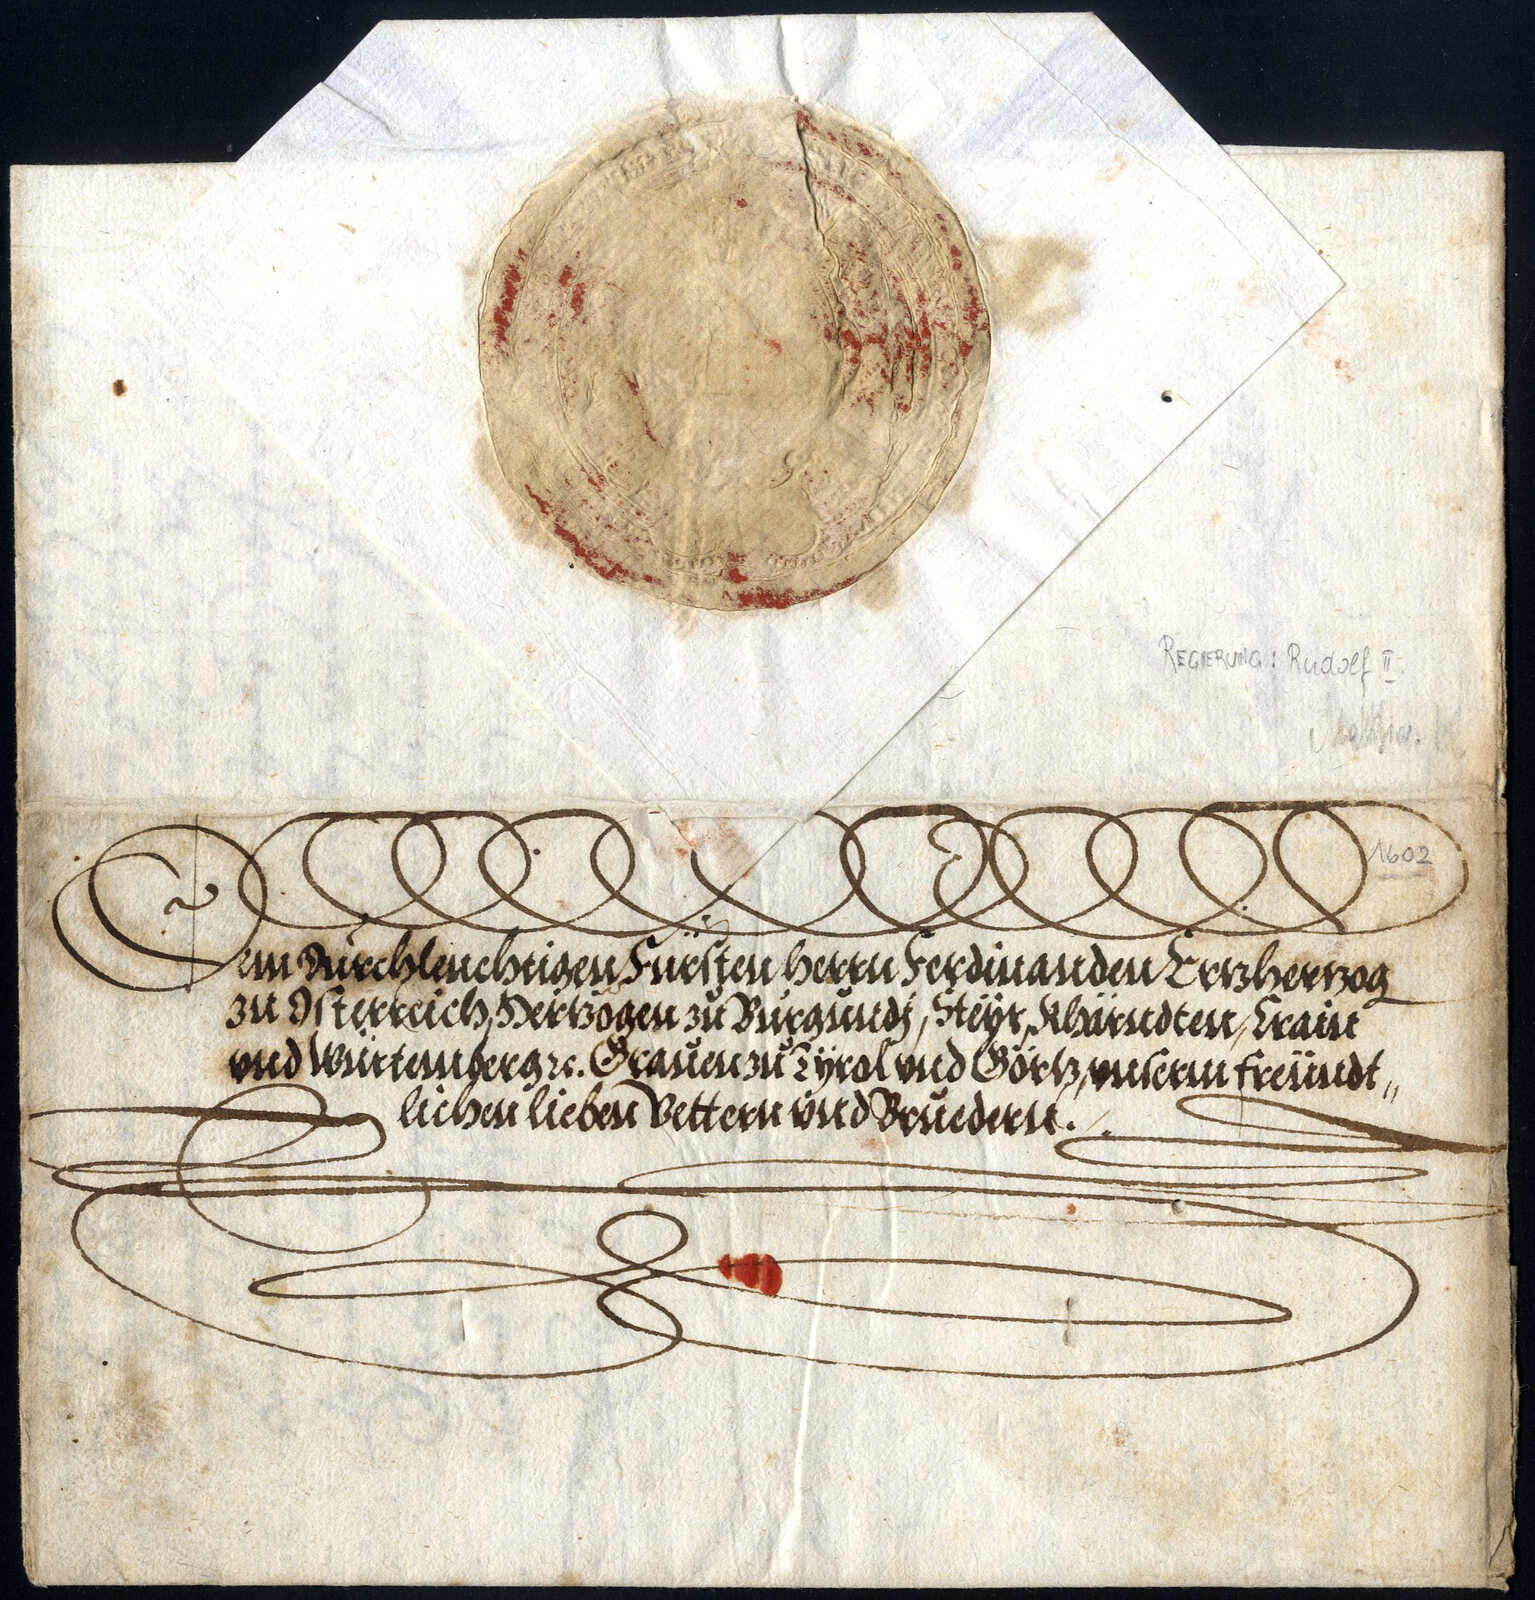 REGIERUNG: Rudolf II.
1602
Dem Durchleuchtigen Fürsten herrn Ferdinanden Ertzhertzog
zu Österreich, Hertzogen zu Burgundj, Steyr, Khärndten, Crain
vnd Würtemberg ꝛc. Grauen zu Tÿrol vnd Görtz, vnserm freündt„
lichen lieben Vettern vnd Bruedern.